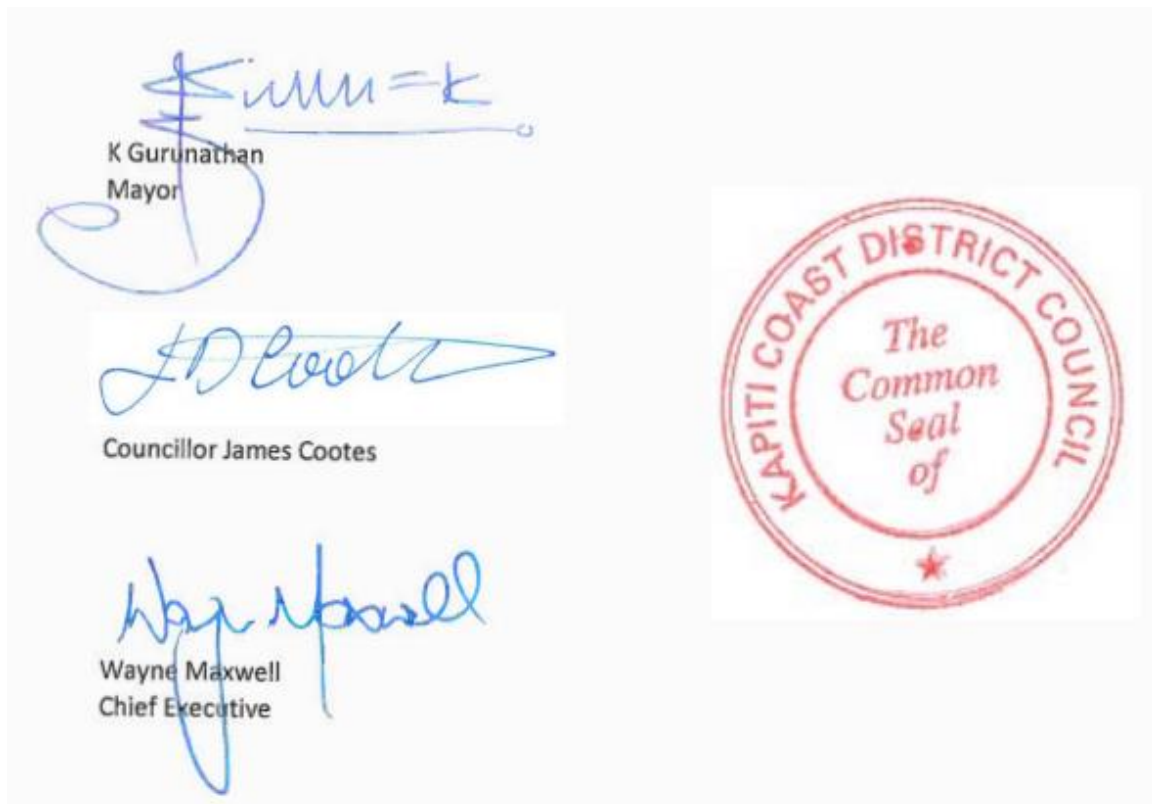 K Gurunathan
Mayor
JD Coot
Councillor James Cootes
Wayne Maxwell
Wayne Maxwell
Chief Executive
KAPITI COAST DISTRICT COUNCIL
The
Common
Seal
of